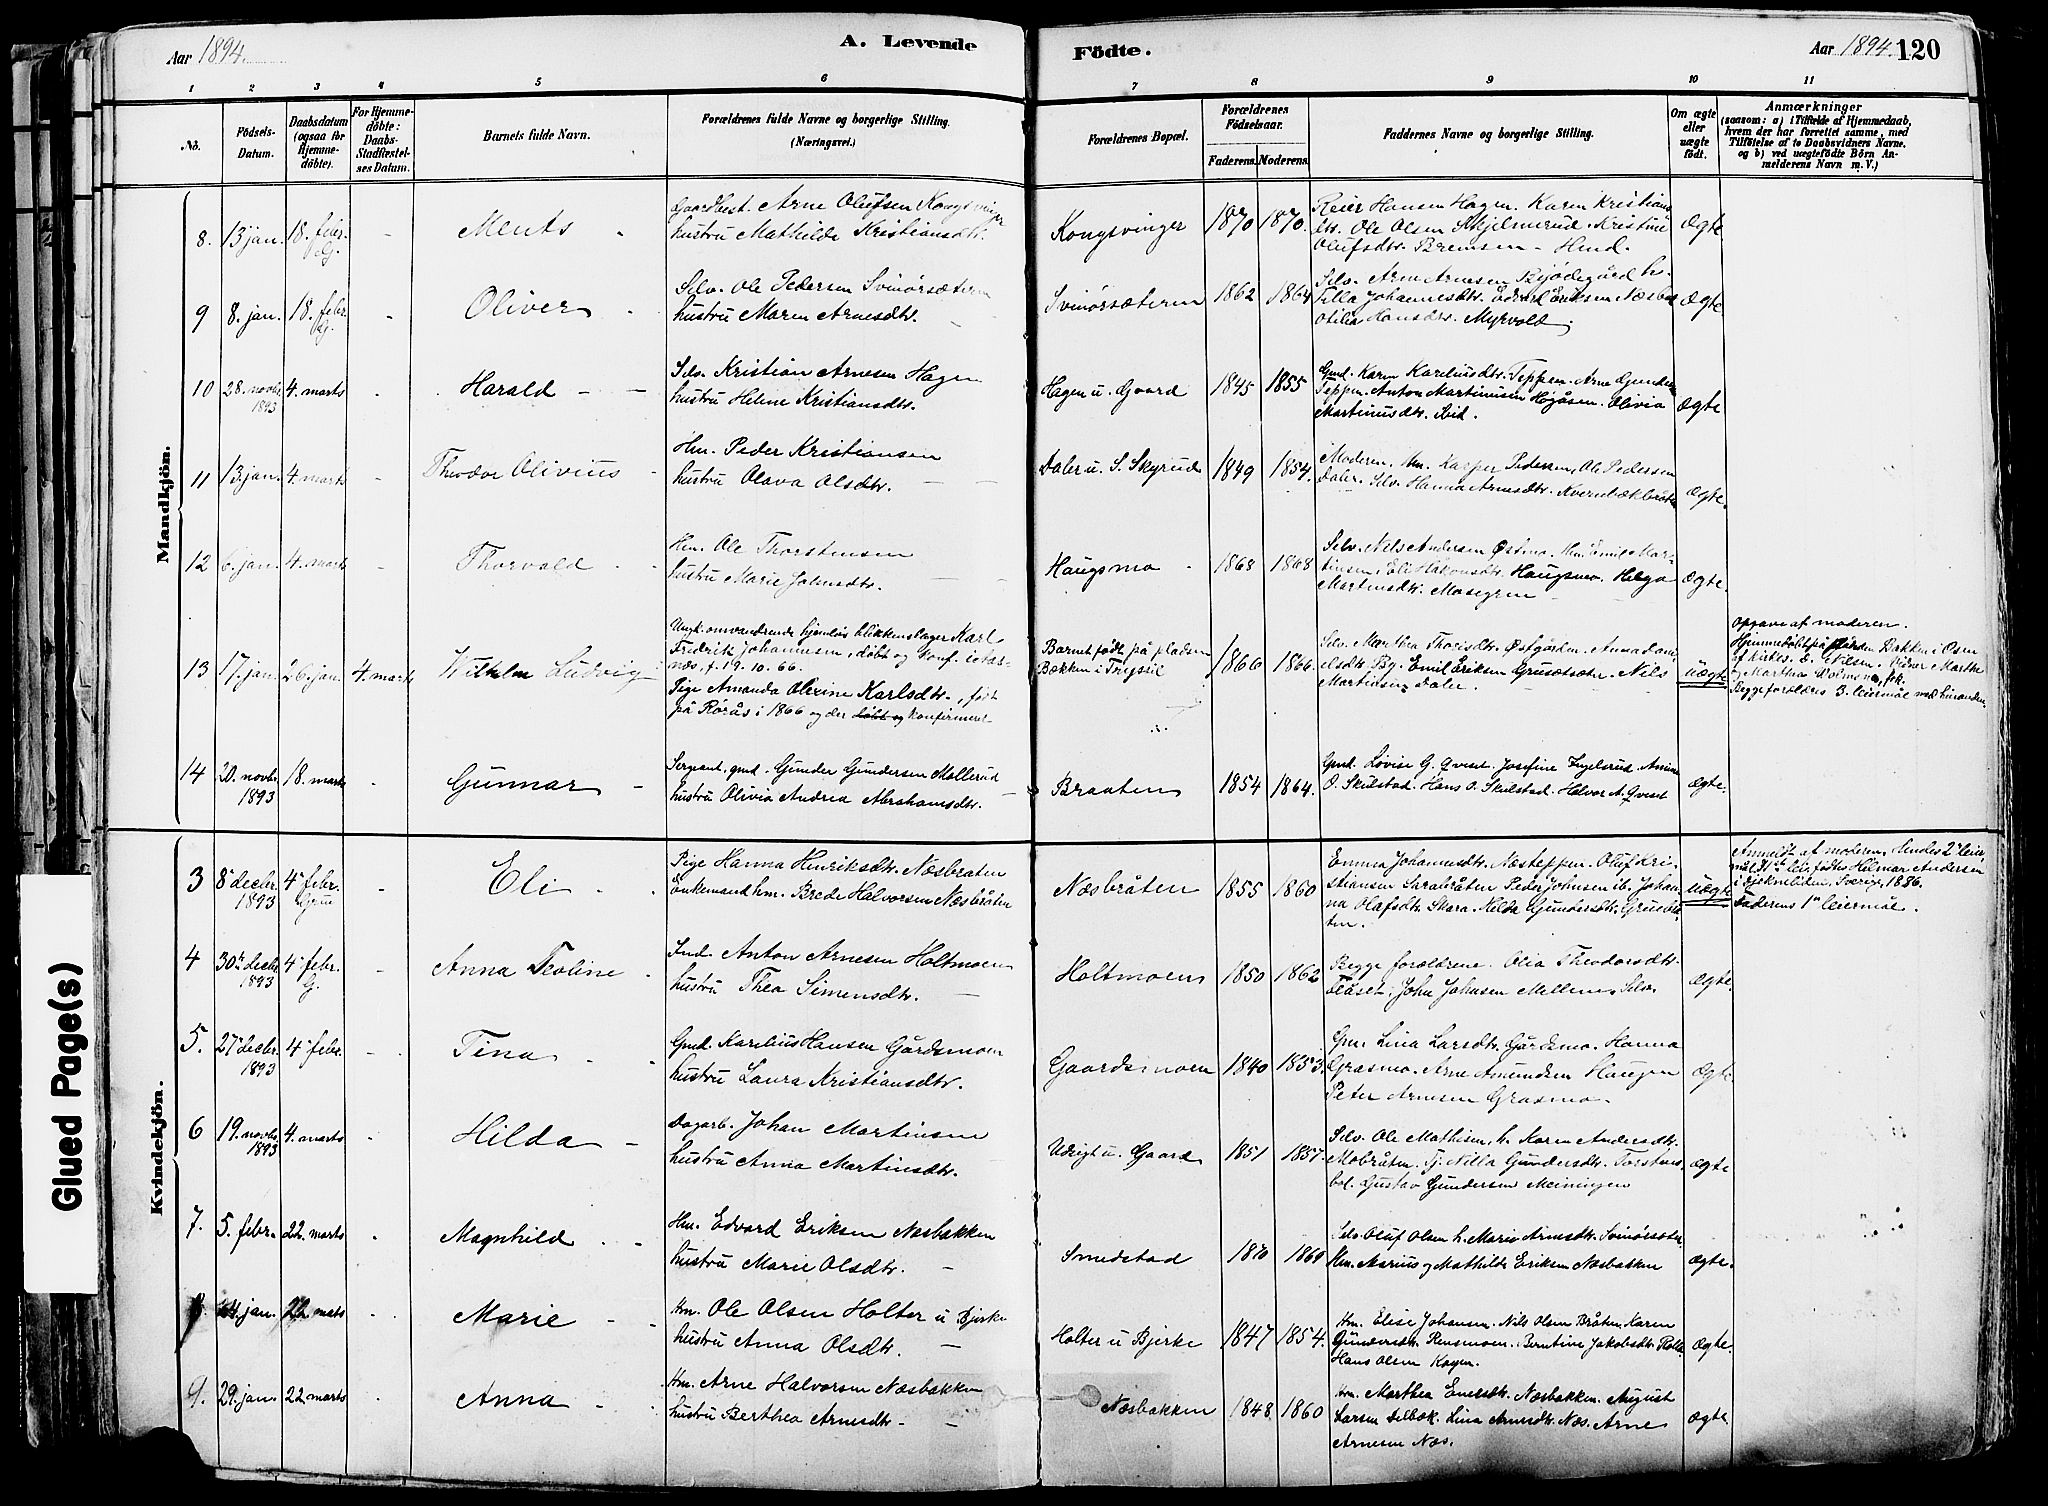 Aar 1894.
A. Levende
Födte.
Aar 1894. 120
1 2 3 4 5 6 7 8 9 10 11
No.
Födsels-Datum.
Daabsdatum (ogsaa for Hjemmedöbte).
For Hjemmedöbte: Daabs-Stadfæstelses Datum.
Barnets fulde Navn.
Forældrenes fulde Navne og borgerlige Stilling. (Næringsvei.)
Forældrenes Bopæl.
Forældrenes Födselsaar.
Faderens. Moderens.
Faddernes Navne og borgerlige Stilling.
Om ægte eller uægte födt.
Anmærkninger
(saasom: a) i Tilfælde af Hjemmedaab, hvem der har forrettet samme, med Tilföielse af to Daabsvidners Navne, og b) ved uægtefödte Börn Anmelderens Navn m. V.)
Mandkjön.
8. 13 jan. 18. febr. Gj. - Ments
Gaardbest. Arne Olufsen Kongsvinger
hustru Mathilde Kristiansdtr.
Kongsvinger 1870 1870.
Reier Hansen Hagen. Karen Kristians
dtr. Ole Olsen Skjelmerud. Kristine
Olufsdtr. Bremsen
Ægte
9 8. jan. 18. febr. Gj. - Oliver
Selv. Ole Pedersen Svinörsæteren
hustru Maren Arnesdtr.
Svinörsæteren 1862 1864
Selv. Arne Arnesen
Tilla Johannesdtr. Edvard Eriksen Næsbak
Otilia Hansdtr. Myrvold.
Ægte
10 28. novbr. 1893 4. marts - Harald
Selv. Kristian Arnesen Hagen
hustru Helene Kristiansdtr.
Hagen u. Gaard 1845 1855
Gmd. Karen Kareliusdtr. Teppen. Arne Gundersen
Teppen. Anton Martinusen Hjåsen. Olivia
Martinusdtr. ibid.
Ægte
11 13 jan. 4. marts - Theodor Olivius
Hm. Peder Kristiansen
hustru Olava Olsdtr.
Daler u. S. Skyrud 1849 1854.
Moderen. Hm. Kasper Pedersen, Ole Pedersen
Daler. Selv. Hanna Arnesdtr. Kvernbækbråten
Ægte.
12 6. jan. 4. marts - Thorvald
Hm. Ole Thorstensen
hustru Marie Johnsdtr.
Haugsmo 1868 1868
Selv. Nils Andersen Østmo. Hm. Emil Mar-
tinsen. Eli Håkonsdtr. Haugsmo. Helga
Martinsdtr. Mosegren
Ægte.
13 17. jan. 26. jan. 4. marts Wilhelm Ludvig
Ungk. omvandrende hjemløs blikkenslager Karl
Fredrik Johannesen, döbt og konf. i Aas-
næs, f. 19. 10. 66.
Pige Amanda Olixine Karlsdtr., født
på Rörås i 1866 og der döbt og konfirmeret
Barnet født på pladsen
Bakken i Trysil 1866 1866.
Selv. Marthea Thorisdtr. Østgården. Anna Dani
elsdtr. Bg. Emil Eriksen Grusætsæter. Nils
Martinsen Daler.
Uægte
Opgave af moderen.
Hjemmedöbt på pladsen Bakken i Osen
af kirkes. E. Nilsen. Vidner Marthe
og Marthea
Begge forældres 3. leiermål med hinanden.
14 20. novbr. 1893 18. marts - Gunnar
Sergeant, gmd. Gunder Gundersen Møllerud
hustru Olivia Andrea Abrahamsdtr.
Braaten 1854 1864.
Gmd. Lovise G. Qvest. Josefine Ingelsrud. Anine
O. Skulstad. Hans O. Skulstad. Halvor A. Qvest
Ægte.
Kvindekjön.
3 8 decbr. 1893 4 febr. Grue - Eli
Pige Hanna Henriksdtr. Næsbraten
Enkemand hm. Brede Halvorsen Næsbråten
Næsbråten 1855 1860
Emma Johannesdtr. Næsteppen. Oluf Kri-
stiansen Sarabråten. Peder Johnsen ib. Johan
na Olafsdtr. Skara. Gundersdtr. Grusbå
ten.
Uægte
Anmeldt af moderen. Hendes 2det leier-
mål. 1ste leir. fødtes Helmar Andersen
i Sverige, 1886.
Faderens 1ste leiermål.
4 30te decbr. 1893 4 febr. Gj. - Anna Teoline
Ind. Anton Arnesen Holtmoen
hustru Thea Simensdtr.
Holtmoen 1850 1862
Begge forældrene. Olia Theodorsdtr.
Flåset. John Johnsen Mellem. Selv
Ægte.
5. 27 decbr. 1893 4 febr. - Tina
Gmd. Karelius Hansen Gårdsmoen
hustru Laura Kristiansdtr.
Gaardsmoen 1840 1853.
Gmn Lina Larsdtr. Gårdsmo. Hanna
Grasmo. Arne Amundsen Haugen
Peter Arnesen Grasmo.
Ægte
6 19. novbr. 1893 4. marts - Hilda
Dagarb. Johan Martinsen
hustru Anna Martinsdtr.
Udrigt u. Gaard 1851 1857.
Selv. Ole Mathisen, h. Karen Andersdtr.
Mobråten. Tj. Nilla Gundersdtr. Torstens
bøl. Gustav Gundersen Meiningen
Ægte
7. 5. febr. 22. marts - Magnhild
Hm. Edvard Eriksen Næsbakken
hustru Marie Olsdtr.
Smedstad 1870 1869
Selv. Oluf Olsen h. Marie Arnesdtr. Svinörsæter
Hm. Marius og Mathilde Eriksen Næsbakken
Ægte.
8. 24 jan. 22. marts - Marie
Hm. Ole Olsen Holter u Bjerke
hustru Anna Olsdtr.
Holter u Bjerke 1847 1854.
Hm. Elise Johansen. Nils Olsen Bråten. Karen
Gundersdtr. Rensmoen. Berntine Jakobsdtr.
Hans Olsen Kagen.
Ægte.
9. 29. jan. 22 marts - Anna
Hm. Arne Halvorsen Næsbakken
hustru Berthea Arnesdtr.
Næsbakken 1848 1860
Hm. Marthea Enersdtr. Næsbakken. August
Larsen Selbak. Lina Arnesdtr. Næs. Arne
Arnesen Næs.
Ægte
Glued Page(s)